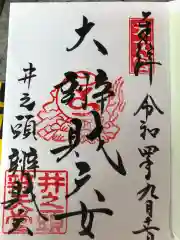 奉拝 令和四年九月
大辨財天女
井之頭辨財天
井之頭